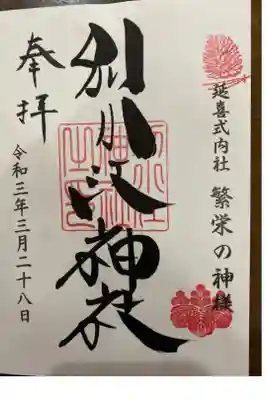 延喜式内社
繁栄の神様
別小江神社
奉拝
令和三年三月二十八日